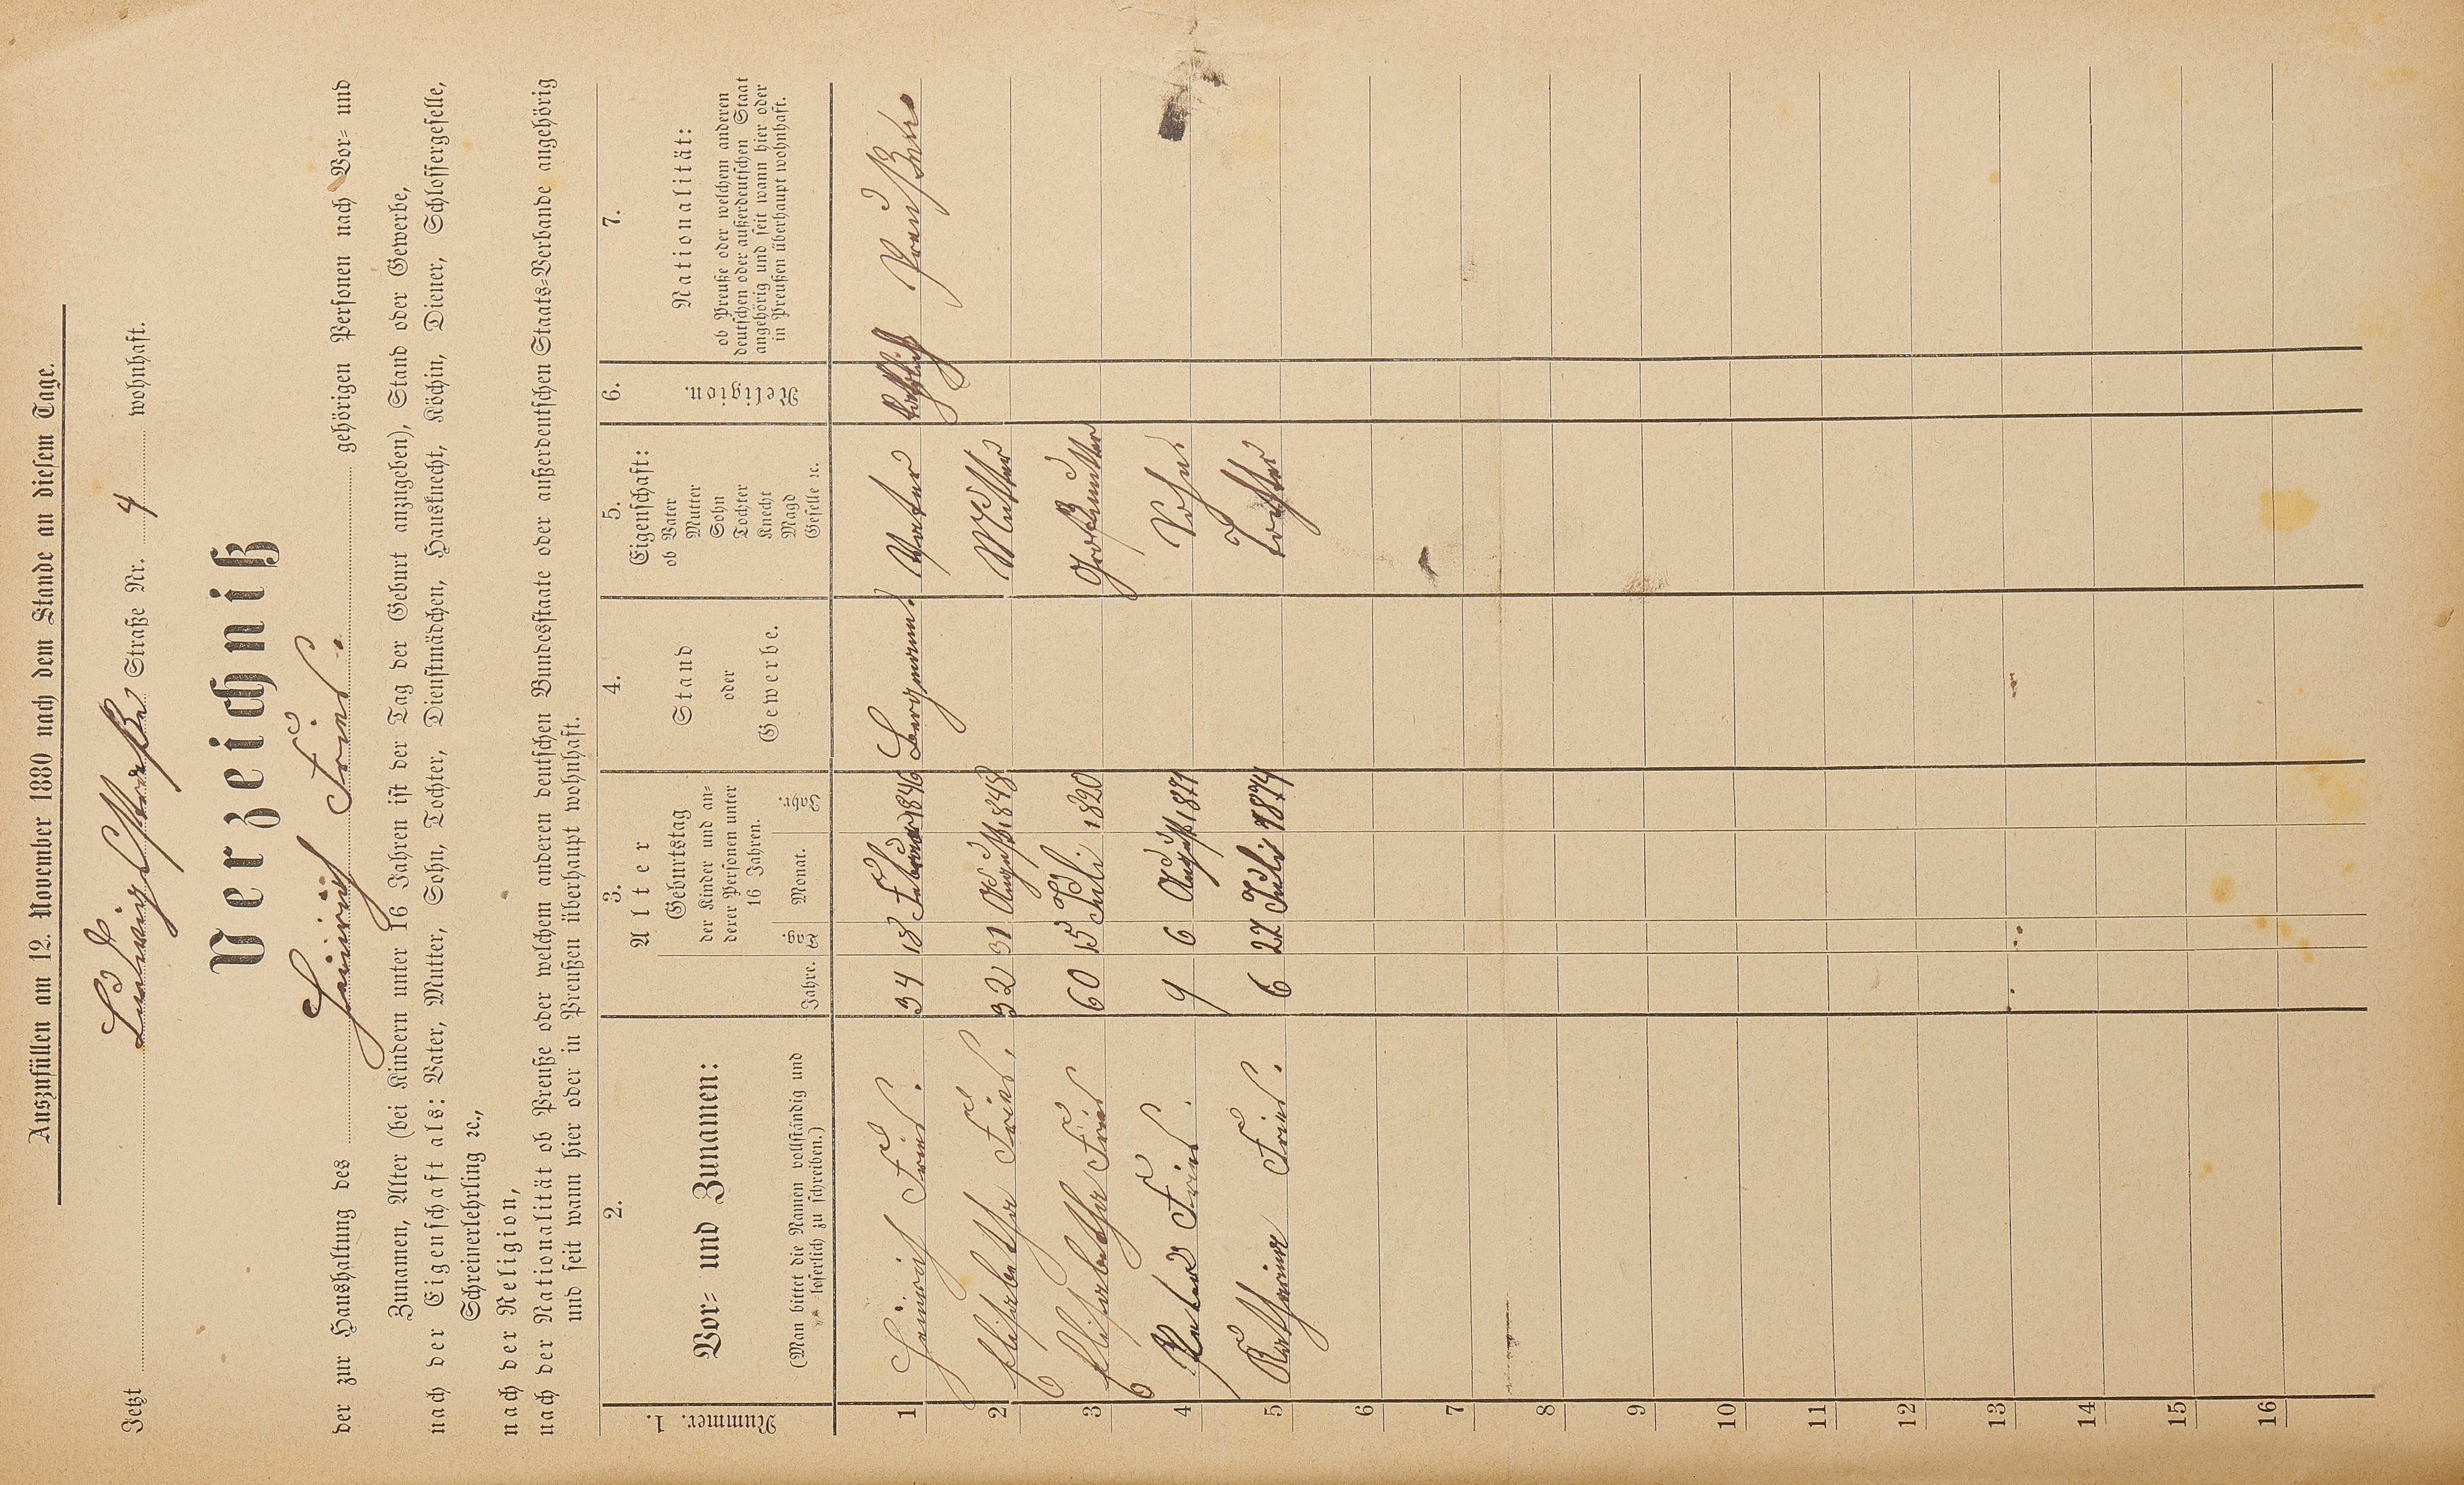 Auszufüllen am 12. November 1880 nach dem Stande an diesem Tage.
Jetzt Ludwigsstraße Straße Nr. 4 wohnhaft.
Verzeichniß
der zur Haushaltung des Heinrich Fries gehörigen Personen nach Vor- und
Zunamen, Alter (bei Kindern unter 16 Jahren ist der Tag der Geburt anzugeben), Stand oder Gewerbe,
nach der Eigenschaft als: Vater, Mutter, Sohn, Tochter, Dienstmädchen, Hausknecht, Köchin, Diener, Schlossergeselle,
Schreinerlehrling ꝛc.,
nach der Religion,
nach der Nationalität ob Preuße oder welchem anderen deutschen Bundesstaate oder außerdeutschen Staats-Verbande angehörig
und seit wann hier oder in Preußen überhaupt wohnhaft.
1. Nummer.
2. Vor- und Zunamen:
(Man bittet die Namen vollständig und
leserlich zu schreiben.)
3. Alter
Jahre.
Geburtstag
der Kinder und an-
derer Personen unter
16 Jahren.
Tag. Monat. Jahr.
4. Stand
oder
Gewerbe.
5. Eigenschaft:
ob Vater
Mutter
Sohn
Tochter
Knecht
Magd
Geselle ꝛc.
6. Religion.
7. Nationalität:
ob Preuße oder welchem anderen
deutschen oder außerdeutschen Staat
angehörig und seit wann hier oder
in Preußen überhaupt wohnhaft.
1 Heinrich Fries. 34 13 Februar 1846 Bergmann. Vater Preußen
2 Elisabetha Fries. 32 31 August 1848 Mutter
3 Elisabetha Fries 60 15 Juli 1820 Großmutter
4 Peter Fries. 9 6 August 1871 Sohn.
5 Katharina Fries. 6 22 Juli 1874 Tochter
6
7
8
9
10
11
12
13
14
15
16